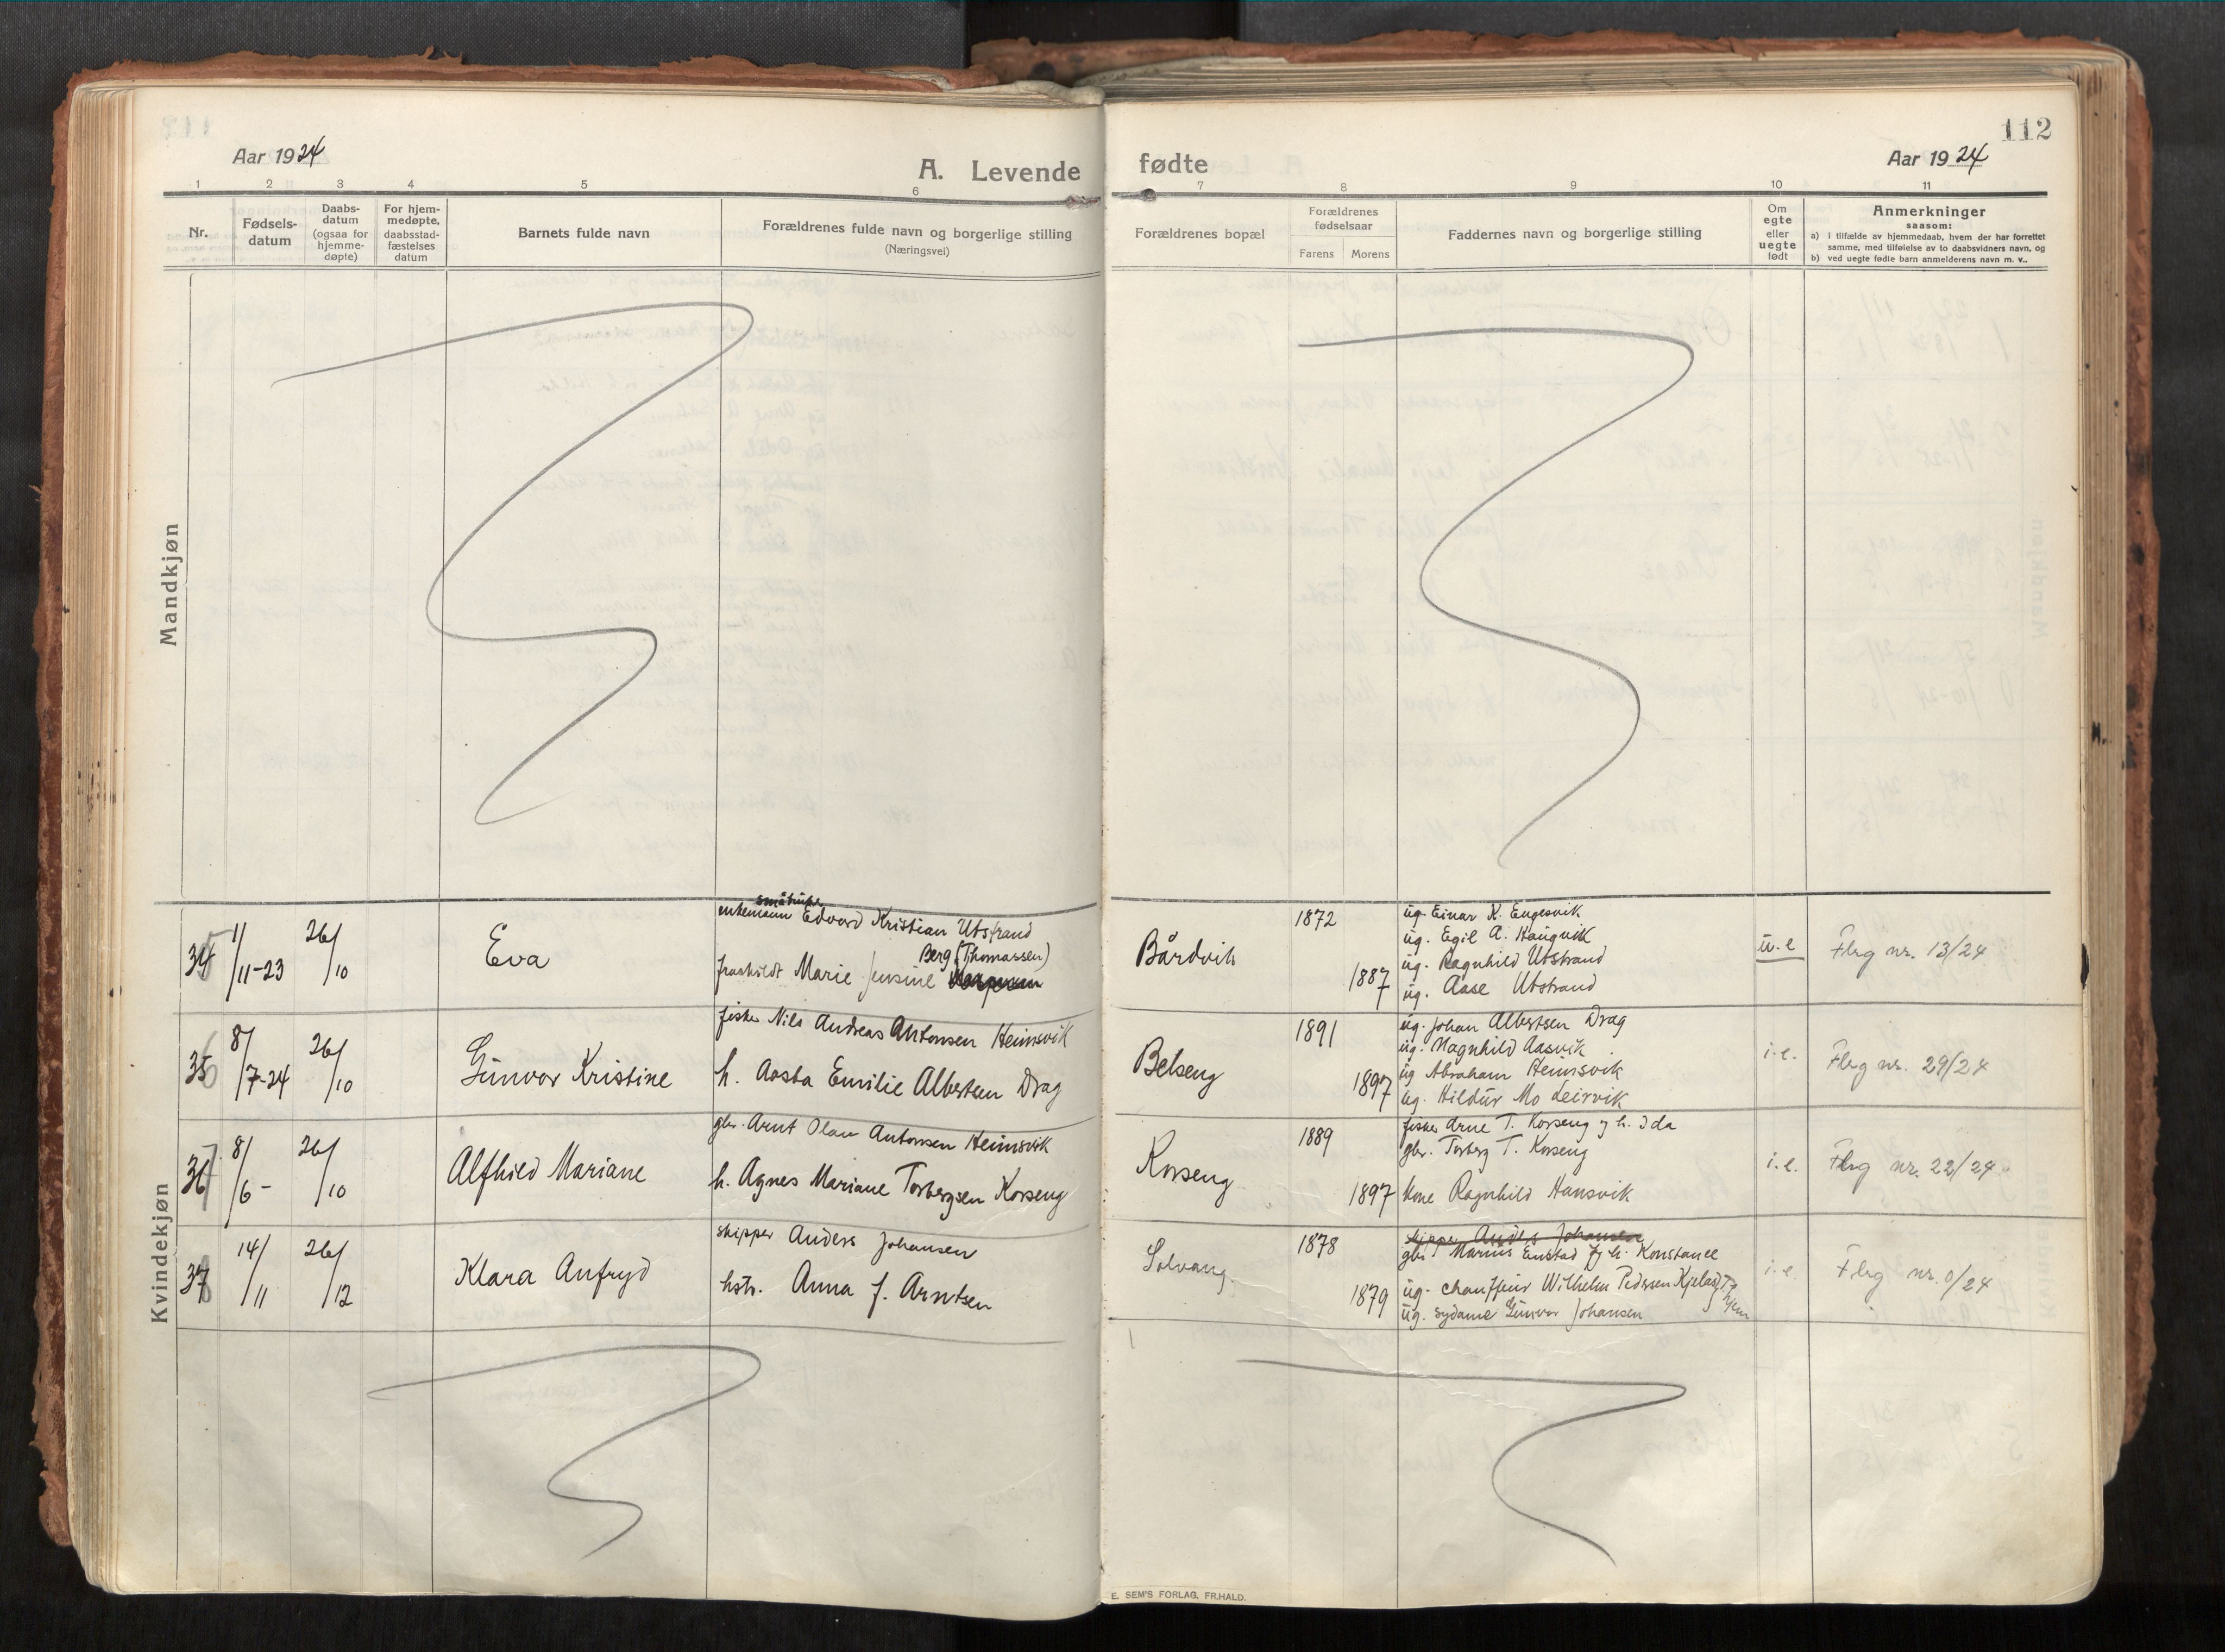 112
Aar 1924
A. Levende
fødte
Aar 1924
1 2 3 4 5 6 7 8 9 10 11
Nr.
Fødsels-
datum
Daabs-
datum
(ogsaa for
hjemme-
døpte)
For hjem-
medøpte,
daabsstad-
fæstelses
datum
Barnets fulde navn
Forældrenes fulde navn og borgerlige stilling
(Næringsvei)
Forældrenes bopæl
Forældrenes
fødselsaar
Farens Morens
Faddernes navn og borgerlige stilling
Om
egte
eller
uegte
født
Anmerkninger
saasom:
a) i tilfælde av hjemmedaab, hvem der har forrettet
samme, med tilføielse av to daabsvidners navn, og
b) ved uegte fødte barn anmelderens navn m. v..
Mandkjøn
Kvindekjøn
34
1/11-23
26/10
Eva
enkemann Edvard Kristian Utstrand
Berg (Thomassen)
fraskildt Marie Jensine
Bårdvik
1872
1887
ug. Einar K. Engesvik
ug. Egil A. Haugvik
ug. Ragnhild Utstrand
ug. Aase Utstrand
u.e
Flrg nr. 13/24
35
8/7-24
26/10
Gunvor Kristine
fisker Nils Andreas Antonsen Heimsvik
h. Aasta Emilie Albertsen Drag
Belseng
1891
1897
ug. Johan Albertsen Drag
ug. Magnhild Aasvik
ug Abraham Heimsvik
ug. Hildur Mo Leirvik
i.e.
Flrg nr. 29/24
36
8/6 -
26/10
Alfhild Mariane
gbr. Arnt Olau Antonsen Heimsvik
h. Agnes Mariane Torbergsen Korseng
Korseng
1889
1897
fisker Arne T. Korseng og h. Ida
gbr. Torberg T. Korseng
Kone Ragnhild Hansvik
i.e.
Flrg nr. 22/24
37
14/11
26/12
Klara Anfryd
skipper Anders Johansen
hstr. Anna f. Arntsen
Solvang
1878
1879
skipper Anders Johansen
gbr. Marius Enstad og h. Konstance
ug. chauffeur Wilhelm Pedersen
ug. sydame Gunvor Johansen
i.e.
Flrg nr. 0/24
E. SEM'S FORLAG, FR.HALD.